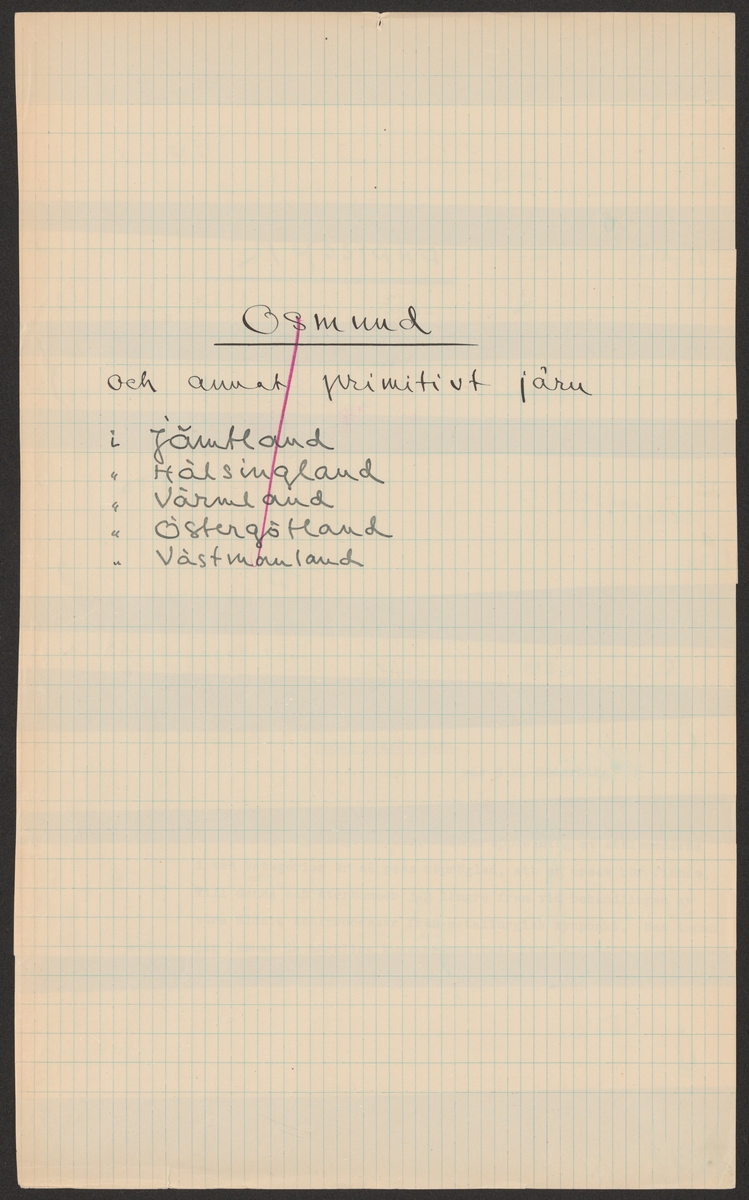 Osmund
och annat primitivt järn
i Jämtland
" Hälsingland
" Värmland
" Östergötland
" Västmanland